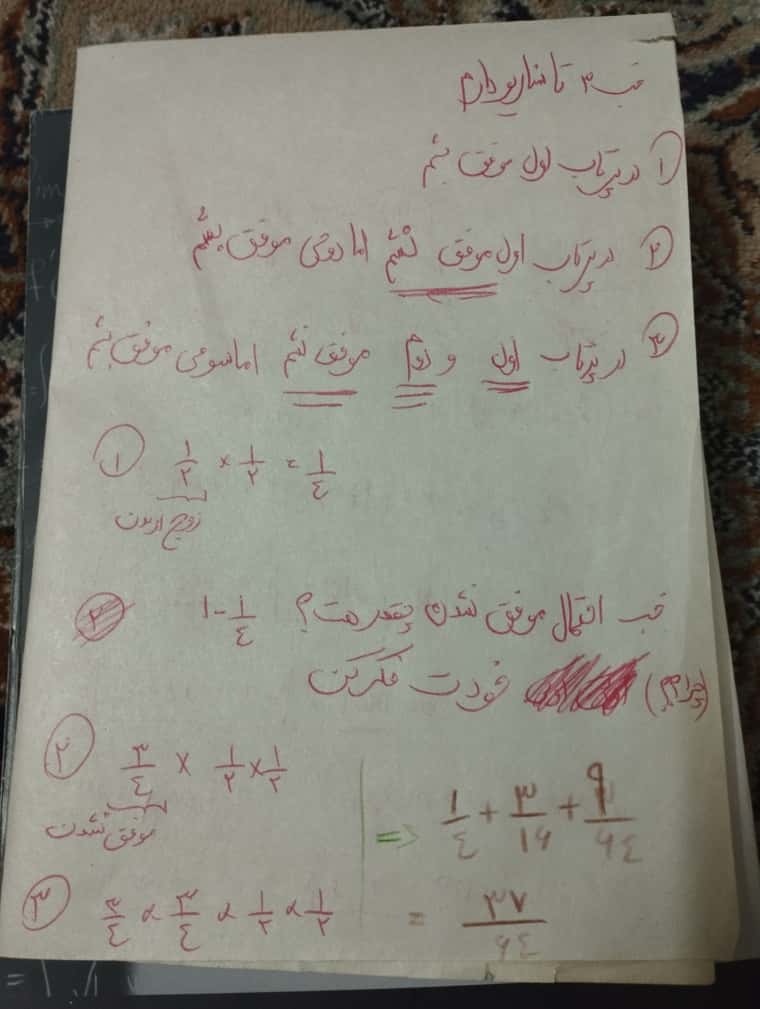 خب ۳ تا سناریو داریم
① در پرتاب اول موفق بشم
② در پرتاب اول موفق نشم اما دومی موفق بشم
③ در پرتاب اول و دوم موفق نشم اما سومی موفق بشم
① ۱/۲ × ۱/۲ = ۱/٤
زوج اومدن
خب احتمال موفق نشدن چقدر هست؟ ۱ - ۱/٤
(چرا؟) خودت فکر کن
② ۳/٤ × ۱/۲ × ۱/۲
موفق نشدن
=> ۱/٤ + ۳/۱۶ + ۹/۶٤
③ ۳/٤ × ۳/٤ × ۱/۲ × ۱/۲
= ۳۷/۶٤